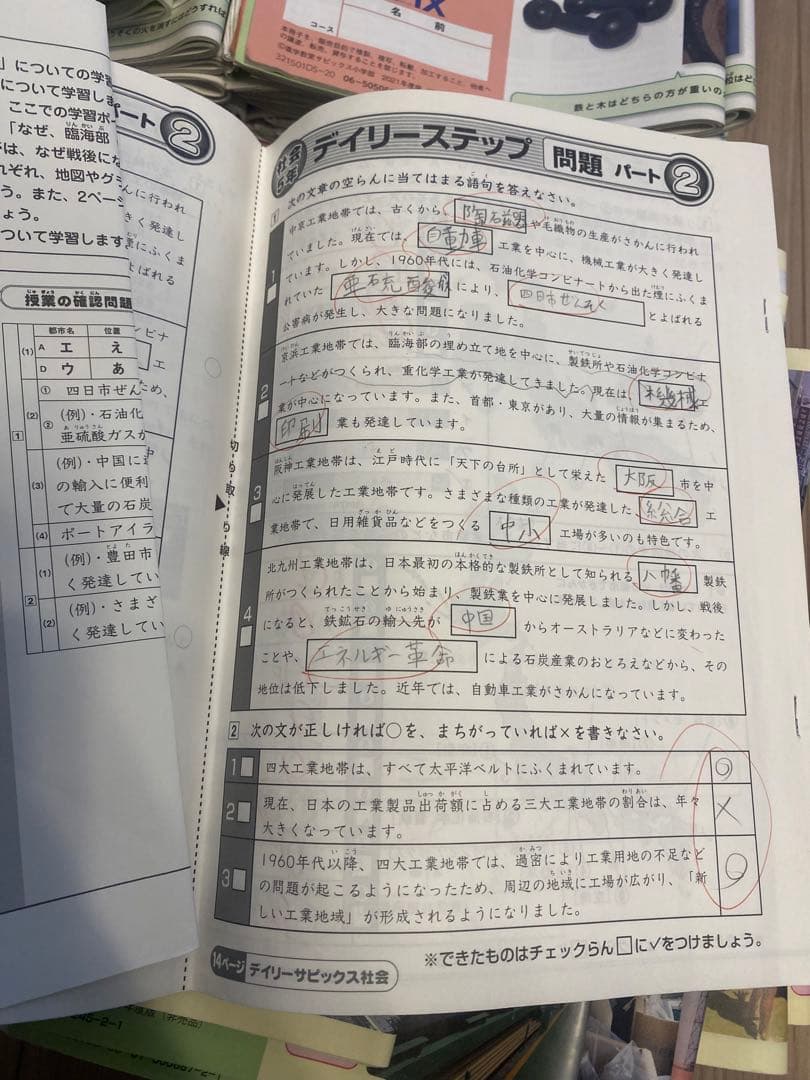 コース
名 前
本冊子を、販売目的で複製、複写、転載、加工すること、他者への譲渡、転売、貸与することを禁じます。
©進学教室サピックス小学部 2021年度版
321S01D5-20
鉄と木はどちらの方が重いの
」についての学習
について学習しま
ここでの学習ポー
「なぜ、臨海部
は、なぜ戦後にな
れぞれ、地図やグ
う。また、2ペー
しょう。
ついて学習します
パート 2
授業の確認問題
都市名 位置
(1) A エ え
D ウ あ
1 (2) ① 四日市ぜん
② (例)・石油化
亜硫酸ガスが
(3) (例)・中国に近
の輸入に便利
で大量の石炭
(4) ポートアイラ
2 (1) (例)・豊田市
く発達してい
(2) (例)・さまざ
く発達してい
切り取り線
社会5年 デイリーステップ 問題 パート 2
1 次の文章の空らんに当てはまる語句を答えなさい。
1 中京工業地帯では、古くから 陶磁器 や毛織物の生産がさかんに行われ
ていました。現在では、 自動車 工業を中心に、機械工業が大きく発達し
ています。しかし、1960年代には、石油化学コンビナートから出た煙にふくま
れていた 亜硫酸 により、 四日市ぜんそく とよばれる
公害病が発生し、大きな問題になりました。
2 京浜工業地帯では、臨海部の埋め立て地を中心に、製鉄所や石油化学コンビナ
ートなどがつくられ、重化学工業が発達してきました。現在は 機械 工
業が中心になっています。また、首都・東京があり、大量の情報が集まるため、
印刷 業も発達しています。
3 阪神工業地帯は、江戸時代に「天下の台所」として栄えた 大阪 市を中
心に発展した工業地帯です。さまざまな種類の工業が発達した 総合 工
業地帯で、日用雑貨品などをつくる 中小 工場が多いのも特色です。
4 北九州工業地帯は、日本最初の本格的な製鉄所として知られる 八幡 製鉄
所がつくられたことから始まり、製鉄業を中心に発展しました。しかし、戦後
になると、鉄鉱石の輸入先が 中国 からオーストラリアなどに変わった
ことや、 エネルギー革命 による石炭産業のおとろえなどから、その
地位は低下しました。近年では、自動車工業がさかんになっています。
2 次の文が正しければ○を、まちがっていれば×を書きなさい。
1 四大工業地帯は、すべて太平洋ベルトにふくまれています。 ○
2 現在、日本の工業製品出荷額に占める三大工業地帯の割合は、年々
大きくなっています。 ×
3 1960年代以降、四大工業地帯では、過密により工業用地の不足など
の問題が起こるようになったため、周辺の地域に工場が広がり、「新
しい工業地域」が形成されるようになりました。 ○
※できたものはチェックらん□に✓をつけましょう。
14ページ デイリーサピックス社会